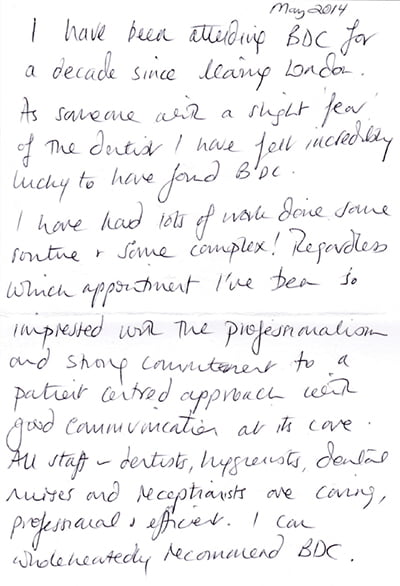 May 2014
I have been attending BDC for
a decade since leaving London.
As someone with a slight 'fear'
of the dentist I have felt incredibly
lucky to have found BDC.
I have had lots of work done some
routine & some complex! Regardless
which appointment I've been so
impressed with the professionalism
and strong commitment to a
patient centred approach with
good communication at its core.
All staff – dentists, hygienists, dental
nurses and receptionists are caring,
professional & efficient. I can
wholeheartedly recommend BDC.